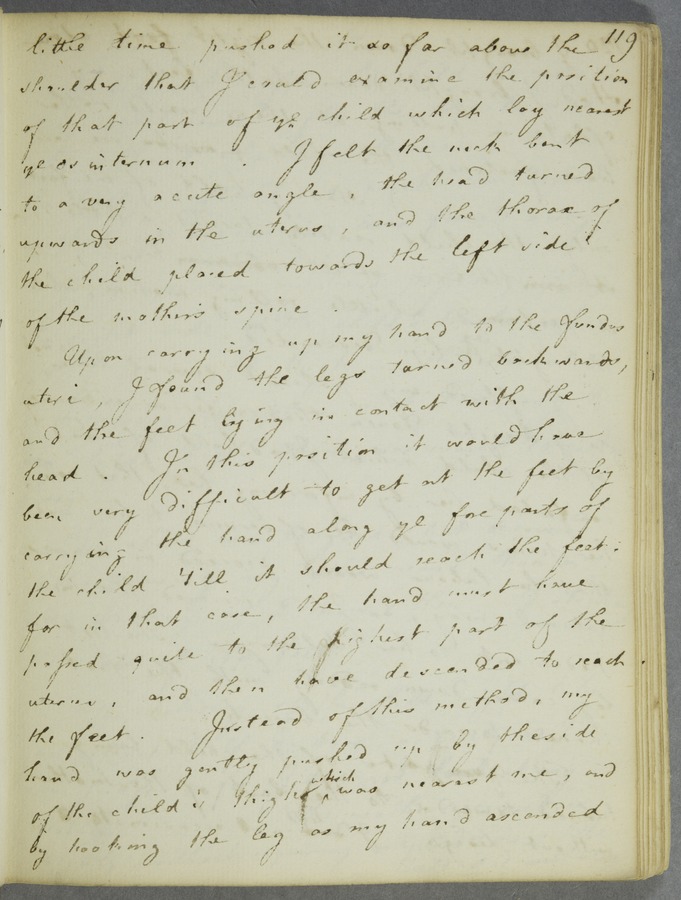 119
little time pushed it so far above the
shoulder that I could examine the position
of that part of ye child which lay nearest
ye os internum . I felt the neck bent
to a very acute angle , the head turned
upwards in the uterus , and the thorax of
the child placed towards the left side
of the mother's spine .
Upon carrying up my hand to the fundus
uteri , I found the legs turned backwards,
and the feet lying in contact with the
head . In this position it would have
been very difficult to get at the feet by
carrying the hand along ye fore parts of
the child 'till it should reach the feet :
for in that case, the hand must have
passed quite to the highest part of the
uterus , and then have descended to reach
the feet . Instead of this method, my
hand was gently pushed up by the side
of the child's thigh which was nearest me , and
by hooking the leg as my hand ascended